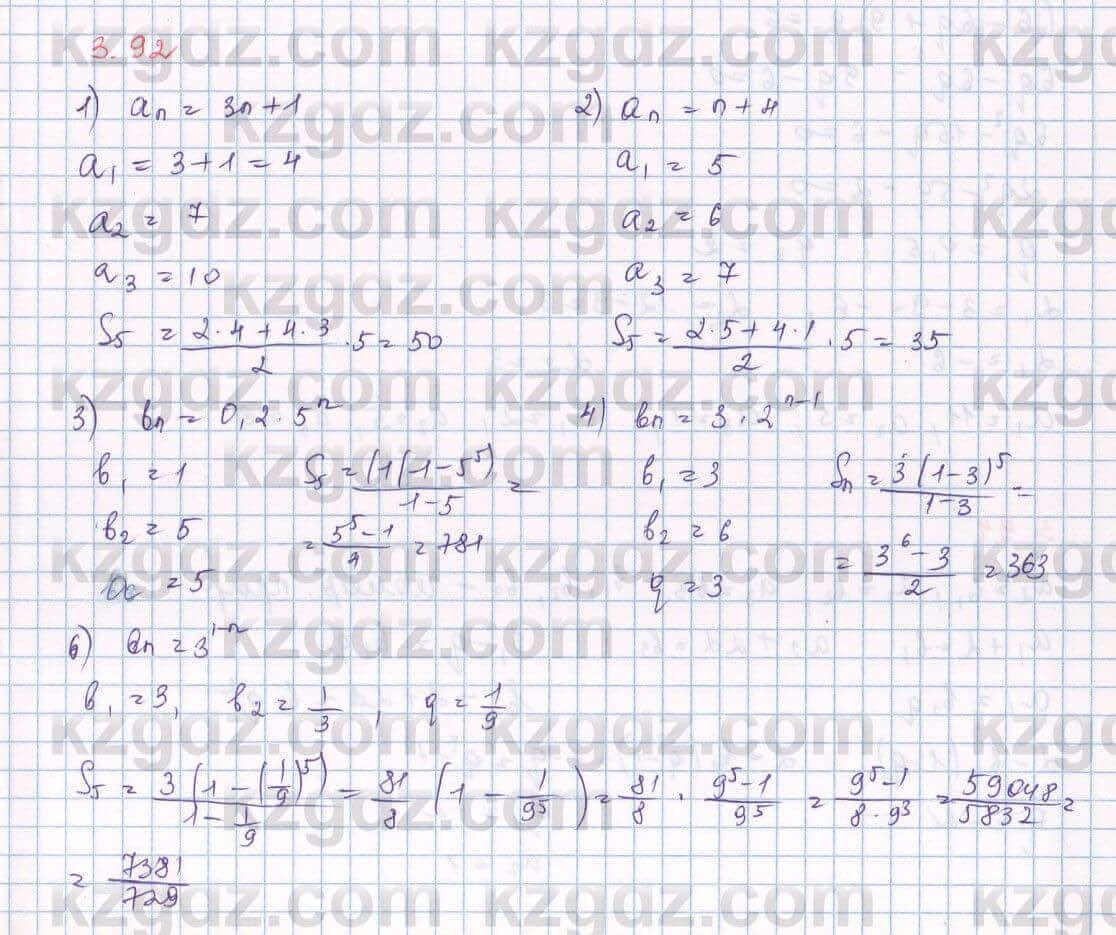 3.92
1) aₙ = 3n+1
a₁ = 3+1 = 4
a₂ = 7
a₃ = 10
S₅ = (2·4+4·3)/2 · 5 = 50
2) aₙ = n+4
a₁ = 5
a₂ = 6
a₃ = 7
S₅ = (2·5+4·1)/2 · 5 = 35
3) bₙ = 0,2·5ⁿ
b₁ = 1
b₂ = 5
= 5
S₅ = (1(1-5⁵)/(1-5) =
= (5⁵-1)/4 = 781
4) bₙ = 3·2ⁿ⁻¹
b₁ = 3
b₂ = 6
q = 3
Sₙ = 3(1-3)⁵/(1-3) =
= (3⁶-3)/2 = 363
6) bₙ = 3¹⁻ⁿ
b₁ = 3, b₂ = 1/3, q = 1/9
S₅ = 3(1-(1/9)⁵)/(1-1/9) = 81/8 (1 - 1/9⁵) = 81/8 · (9⁵-1)/9⁵ = (9⁵-1)/(8·9³) = 59048/5832 =
= 7381/729
kzgdz.com